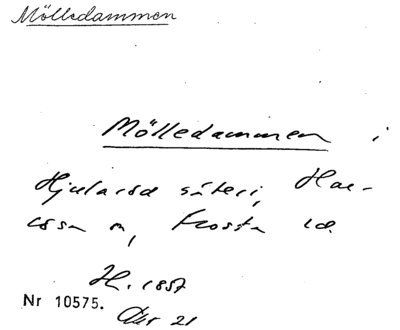 Mölledammen
Mölledammen i
Hjularöd säteri, Har-
sn, Frosta
H. 1857
Nr 10575.
21